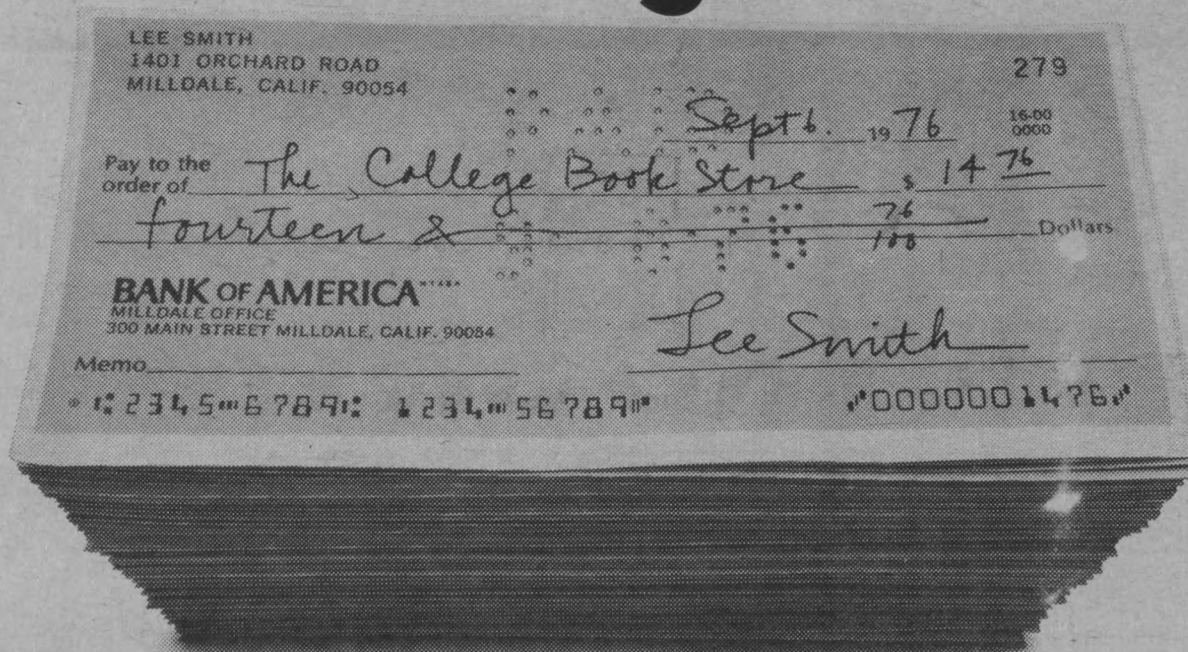 LEE SMITH
1401 ORCHARD ROAD
MILLDALE, CALIF. 90054
279
Sept 6. 19 76
16-00
0000
Pay to the
order of The College Book Store $ 14 76
fourteen & 76/100 Dollars
BANK OF AMERICA
MILLDALE OFFICE
300 MAIN STREET MILLDALE, CALIF. 90054
Lee Smith
Memo
⑆2345⑉6789⑆ 1234⑉56789⑈ ⑈0000001476⑈